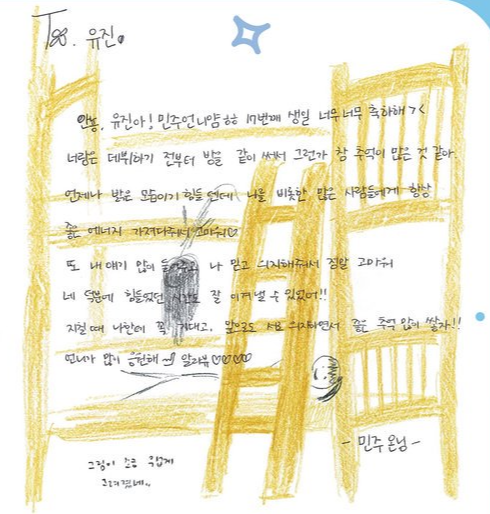 To. 유진♥
안뇽, 유진아! 민주언니얌ㅎㅎ 17번째 생일 너무너무 축하해 ><
너랑은 데뷔하기 전부터 방을 같이 써서 그런가 참 추억이 많은 것 같아.
언제나 밝은 모습이기 힘들텐데 나를 비롯한 많은 사람들에게 항상
좋은 에너지 가져다줘서 고마워♡
또 내 얘기 많이 들어주고 나 믿고 의지해줘서 정말 고마워
네 덕분에 힘들었던 시간도 잘 이겨낼 수 있었어!!
지칠 때 나한테 꼭 기대고, 앞으로도 서로 의지하면서 좋은 추억 많이 쌓자!!
언니가 많이 응원해 알라뷰♡♡♡♡
- 민주 온닝 -
그림이 조금 웃기게
그려졌네..